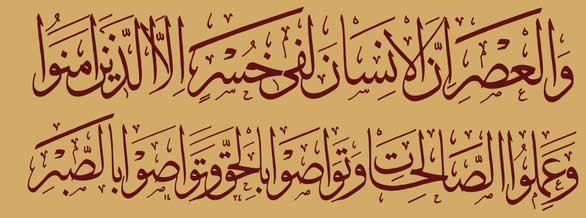 وَالْعَصْرِ إِنَّ الْإِنسَانَ لَفِي خُسْرٍ إِلَّا الَّذِينَ آمَنُوا
وَعَمِلُوا الصَّالِحَاتِ وَتَوَاصَوْا بِالْحَقِّ وَتَوَاصَوْا بِالصَّبْرِ